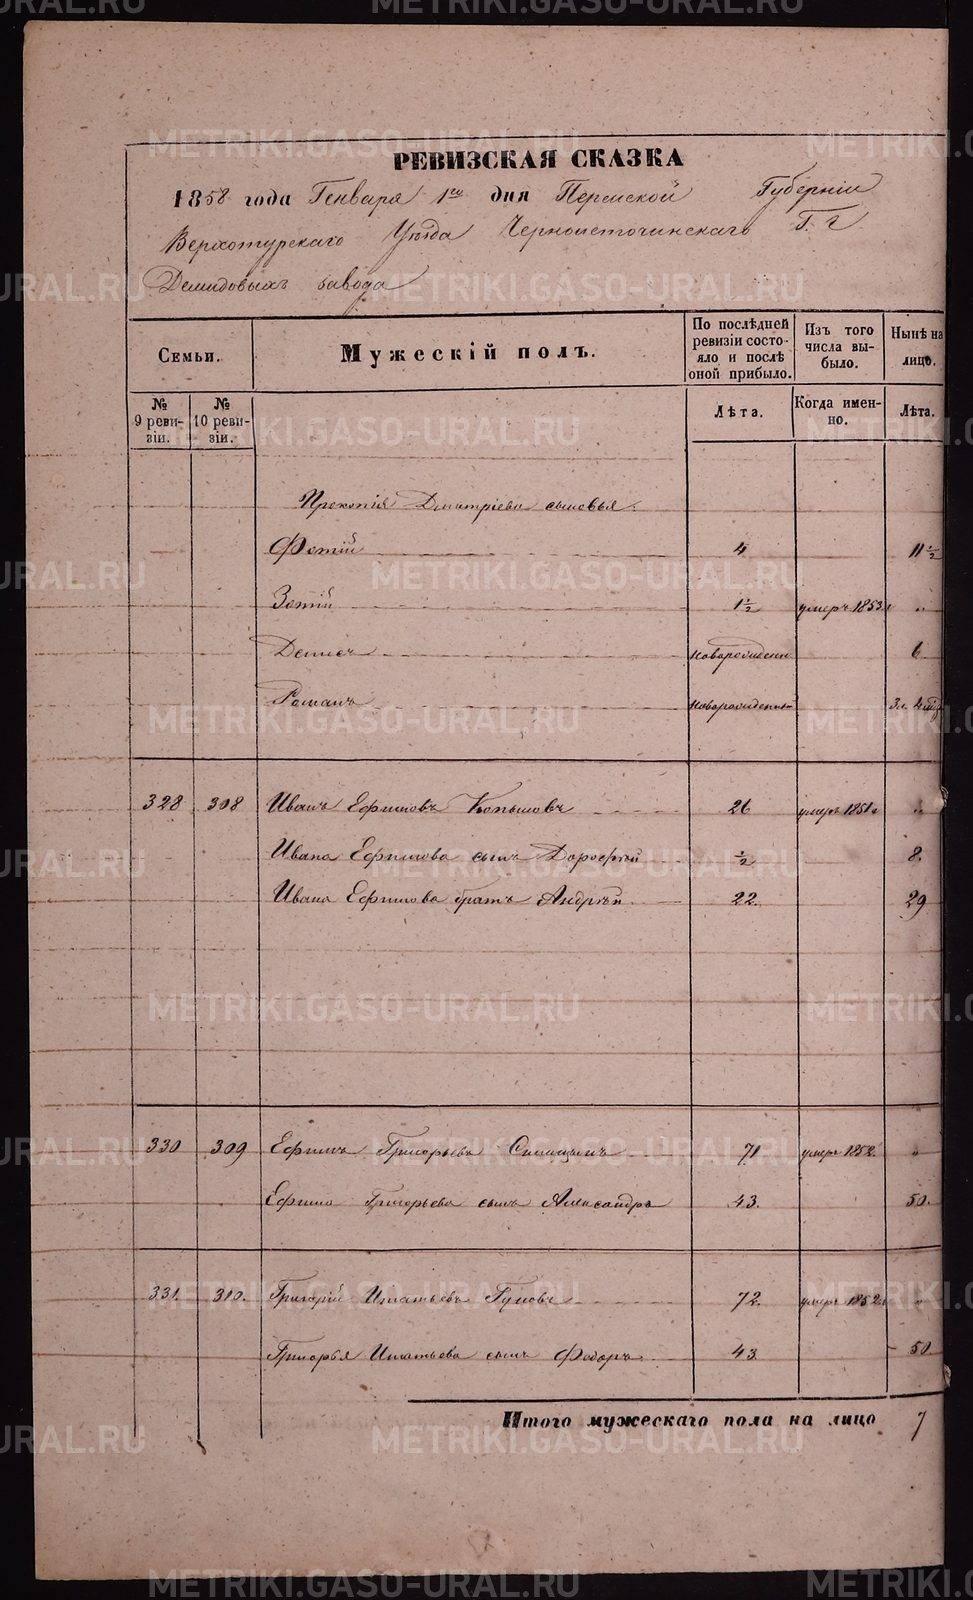 РЕВИЗСКАЯ СКАЗКА
1858 года Генваря 1го дня Пермской Губерніи
Верхотурскаго Уѣзда Черноисточинскаго Г. г
Демидовыхъ завода
Семьи.
Мужескій полъ.
По послѣдней ревизіи состояло и послѣ оной прибыло.
Изъ того числа выбыло.
Нынѣ на лицо.
№ 9 ревизіи.
№ 10 ревизіи.
Лѣта.
Когда именно.
Лѣта.
Прокопія Дмитріева сыновья.
Фотій 4 11 1/2
Зотій 1 1/2 умеръ 1853 "
Денисъ новорожденн 6
Романъ новорожденный
328 308 Иванъ Ефимовъ 26 умеръ 1851 г "
Ивана Ефимова сынъ Дорофей 1/2 8.
Ивана Ефимова братъ Андрей 22. 29
330 309 Ефимъ Григорьевъ 71 умеръ 1852 "
Ефима Григорьева сынъ Александръ 43. 50.
331 310. Григорій Игнатьевъ Гуновъ 72. умеръ 1852 г "
Григорья Игнатьева сынъ Федоръ 43 50
Итого мужескаго пола на лицо 7
METRIKI.GASO-URAL.RU